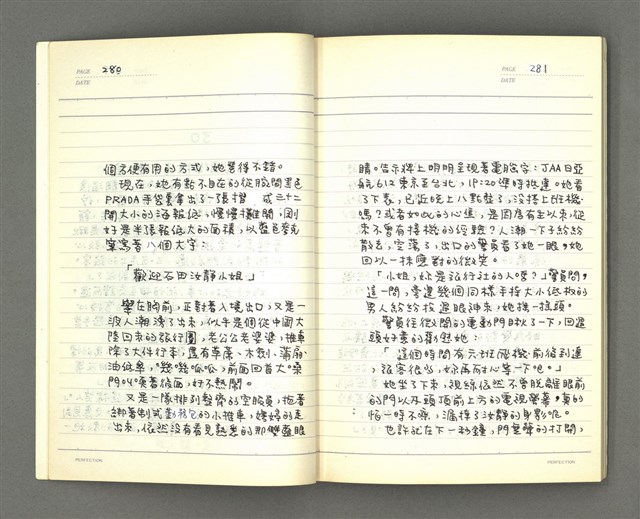 PAGE 280
DATE
個方便有用的方式,她覺得不錯。
現在,她有點不自在的從腋間墨色
PRADA手袋裏拿出了一張摺成三十二
開大小的海報紙,慢慢攤開,剛
好是半張報紙大的面積,以藍色麥克
筆寫著八個大字:
「歡迎石田汝靜小姐」
舉在胸前,正對著入境出口,又是一
波人潮湧了出來,似乎是個從中國大
陸回來的旅行團,老公公老婆婆,推車
除了大件行李,還有草蓆、木劍、蒲扇
油紙傘,嘰嘰呱呱,前面回首大嗓
門叫來著後面,好不熱鬧。
又是一隊排列整齊的空服員,拖著
綁著制式的小推車,娉婷的走
出來,依然沒有看見熟悉的那雙藍眼
PERFECTION
PAGE 281
DATE
睛。告示牌上明明呈現著電腦字:JAA日亞
航612東京至台北,19:20準時抵達。她看
了下表,已近晚上八點整了,沒搭上班機
嗎?或者如此的心焦,是因為有生以來,從
來不曾有接機的經驗?人潮一下子紛紛
散去,空蕩了,出口的警員看了她一眼,她
回以一抹應對的微笑。
「小姐,妳是旅行社的人嗎?」警員問,
這一問,旁邊幾個同樣手持大小紙板的
男人紛紛投過眼神來,她搖一搖頭。
警員往微開的電動門瞅了一下,回過
頭好意的勸慰她:
「這個時間有六班飛機前後到達
,旅客很多,妳再耐心等一下吧。」
她坐了下來,視線依然不曾脫離眼前
的門以及頭頂前上方的電視螢幕,真的
怕一時不察,漏掉了汝靜的身影呢。
也許就在下一秒鐘,門重聲的打開,
PERFECTION